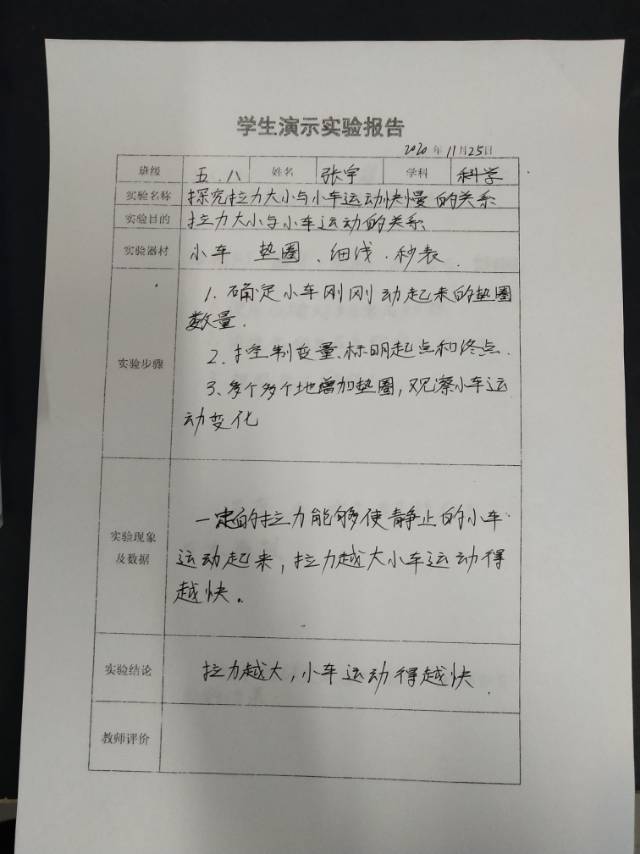 学生演示实验报告
2020年11月25日
班级 五.八 姓名 张宇 学科 科学
实验名称 探究拉力大小与小车运动快慢的关系
实验目的 拉力大小与小车运动的关系
实验器材 小车 垫圈、细线.秒表.
实验步骤
1.确定小车刚刚动起来的垫圈
数量.
2.控制变量.标明起点和终点.
3、多个多个地增加垫圈,观察小车运
动变化
实验现象
及数据
一定的拉力能够使静止的小车
运动起来,拉力越大小车运动得
越快.
实验结论 拉力越大,小车运动得越快.
教师评价